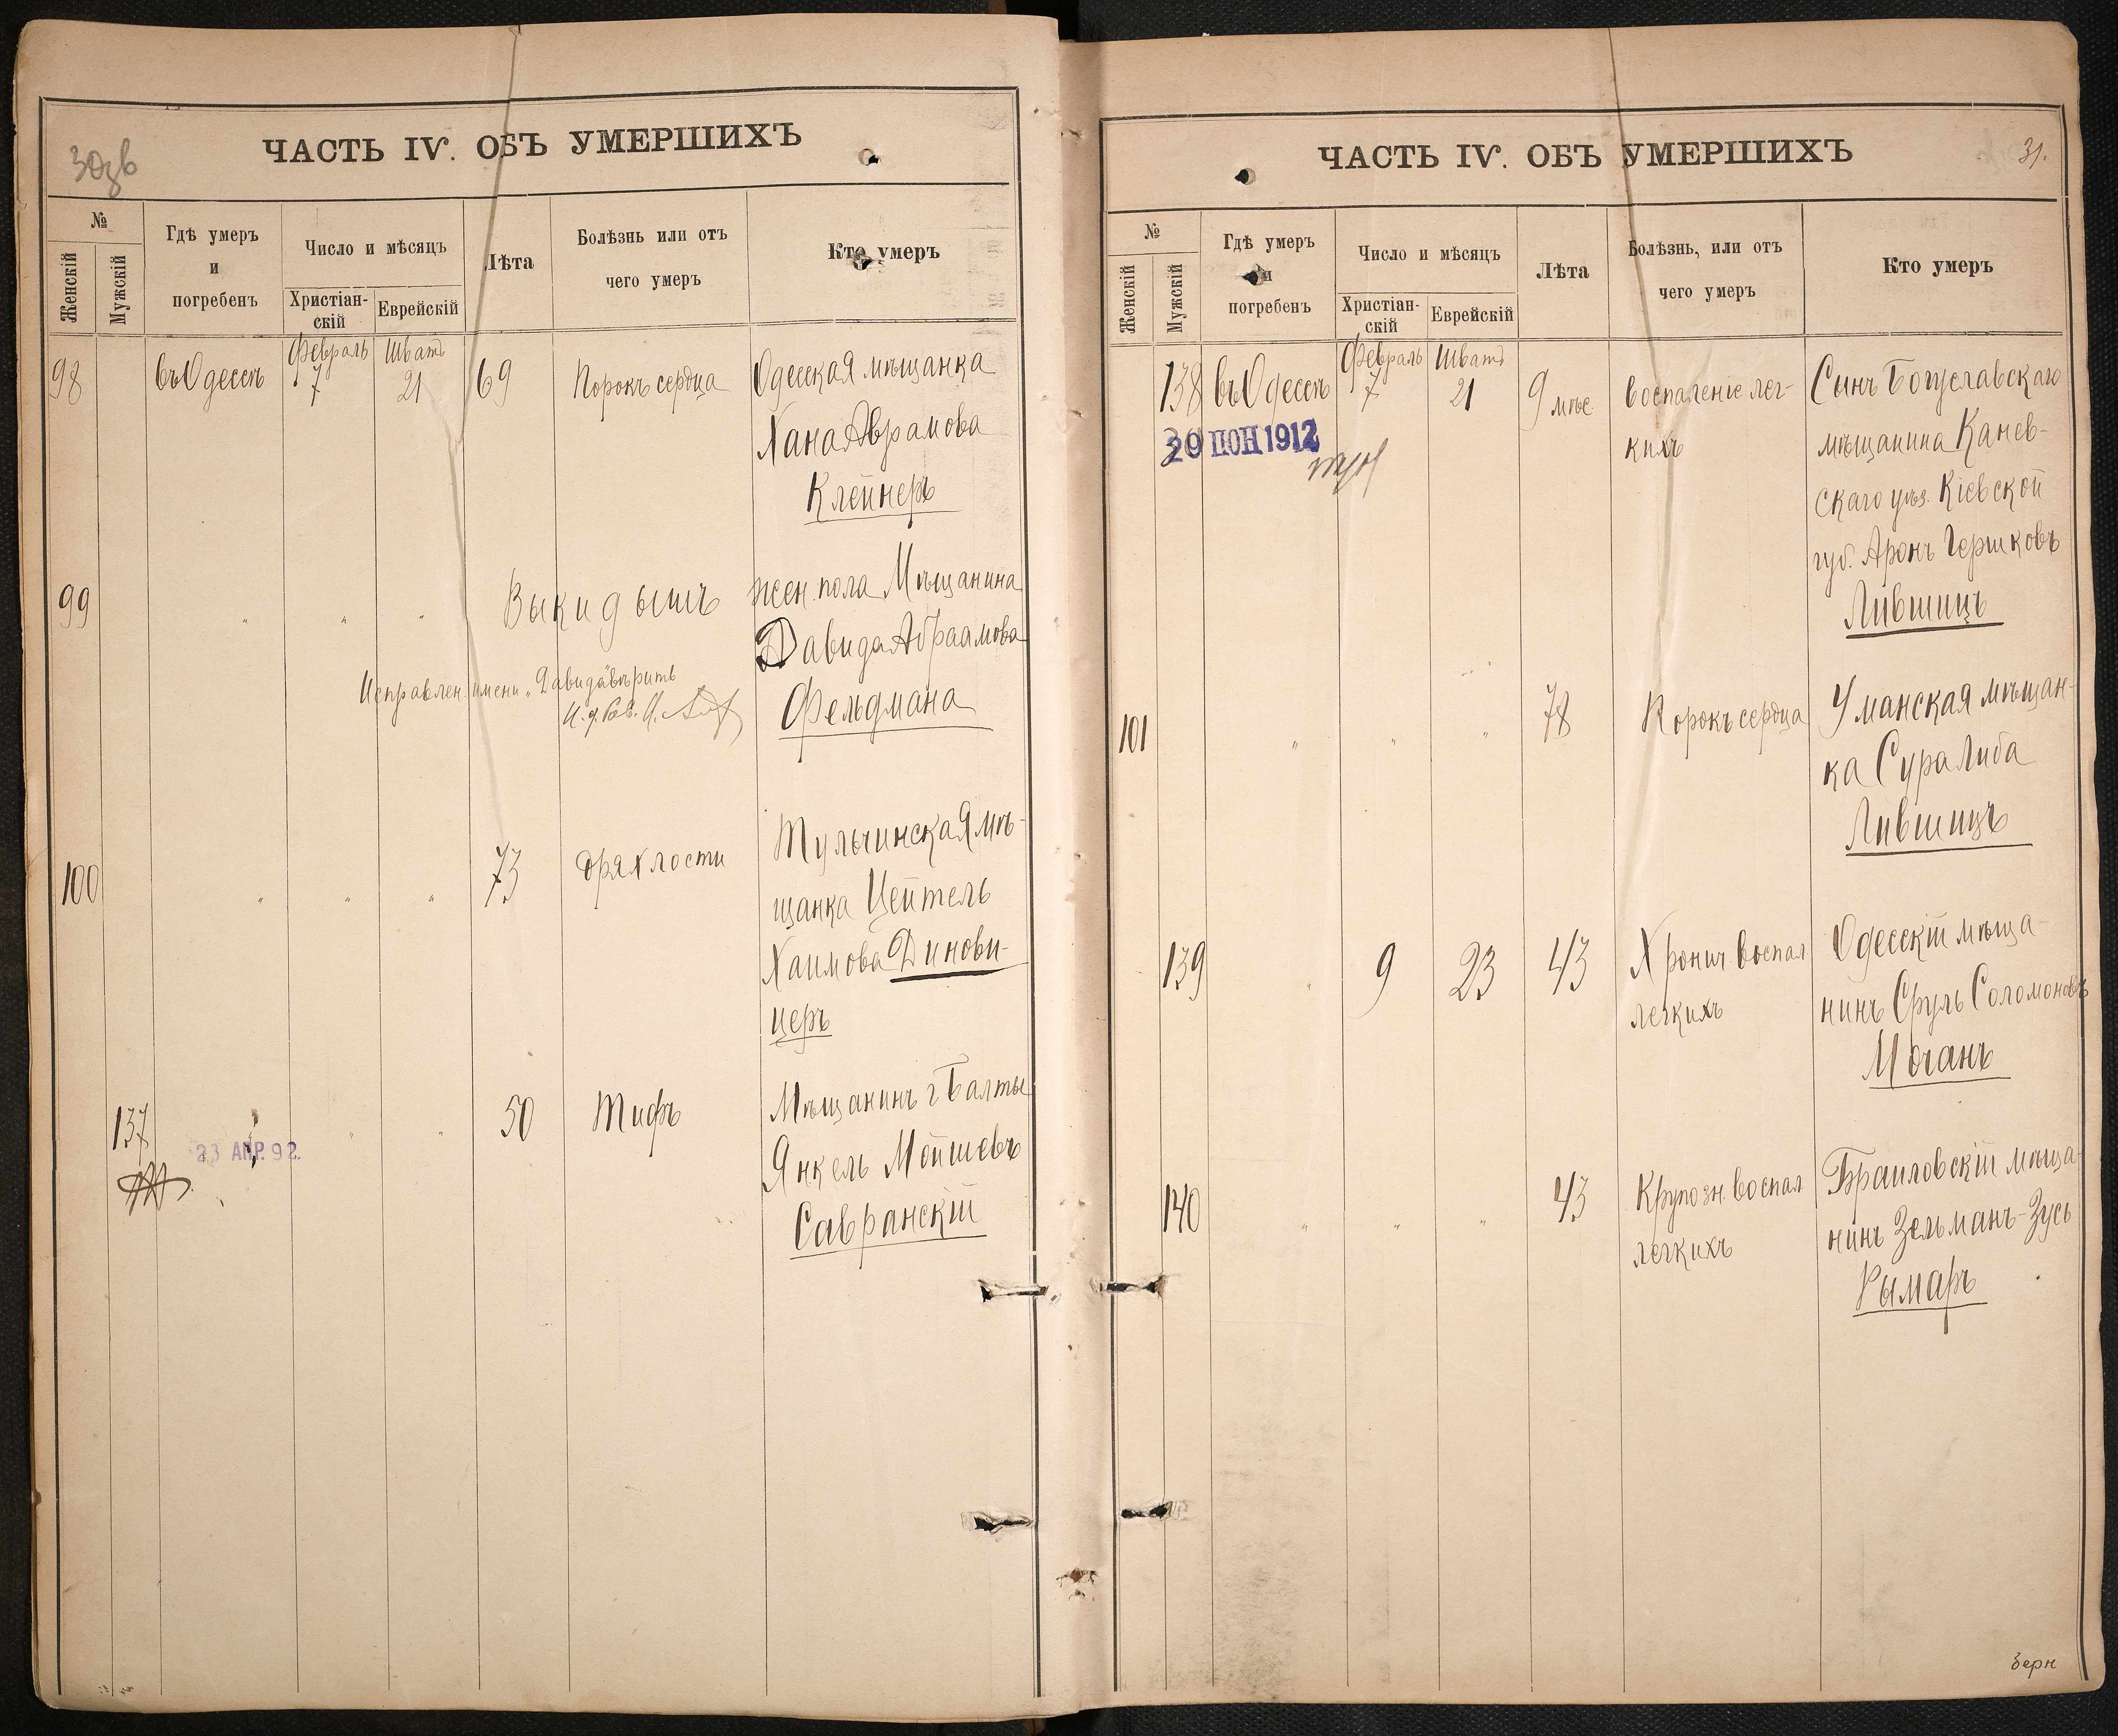 30дв
ЧАСТЬ IV. ОБЪ УМЕРШИХЪ
№
Женскій
Мужскій
Гдѣ умеръ
и
погребенъ
Число и мѣсяцъ
Христіан-
скій
Еврейскій
Лѣта
Болѣзнь или отъ
чего умеръ
Кто умеръ
98 въ Одессѣ Февраль 7 Шватъ 21 69 Порокъ сердца Одесская мѣщанка
Хана Аврамова
Клейнеръ
99 " " " Выкидышъ жен. пола Мѣщанина
Давида Абраамова
Исправлен. имени „Давида" вѣрить
Фельдмана
100 " " " 73 дряхлости Тульчинская мѣ-
щанка Цейтель
Хаимова Динови-
церъ
137 " " " 50 Тифъ Мѣщанинъ г Балты
23 АПР. 92.
Янкель Мойшевъ
Савранскій
ЧАСТЬ IV. ОБЪ УМЕРШИХЪ
31.
№
Женскій
Мужскій
Гдѣ умеръ
и
погребенъ
Число и мѣсяцъ
Христіан-
скій
Еврейскій
Лѣта
Болѣзнь, или отъ
чего умеръ
Кто умеръ
138 въ Одессѣ Февраль 7 Шватъ 21 9 мѣс. Воспаленіе лег-
кихъ
Сынъ Богуславскаго
мѣщанина Канев-
скаго уѣз. Кіевской
губ. Аронъ Гершковъ
Лившицъ
1912
101 " " " 78 Порокъ сердца Уманская мѣщан-
ка Сура Либа
Лившицъ
139 " 9 23 43 Хронич. воспал.
легкихъ
Одесскій мѣща-
нинъ Сруль Соломоновъ
Мочанъ
140 " " " 43 Крупозн. воспал.
легкихъ
Браиловскій мѣща-
нинъ Зельманъ-Зусь
Рымаръ